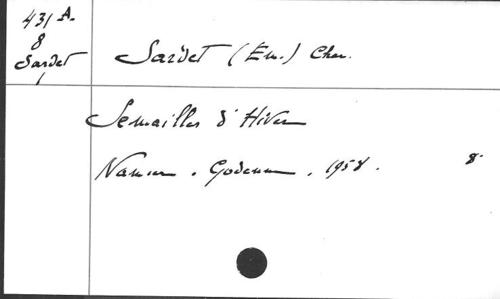 431 A.
8
Sardet
1
Sardet (Em.) Chan.
Semailles d'Hiver
Namur. Godenne. 1958. 8°